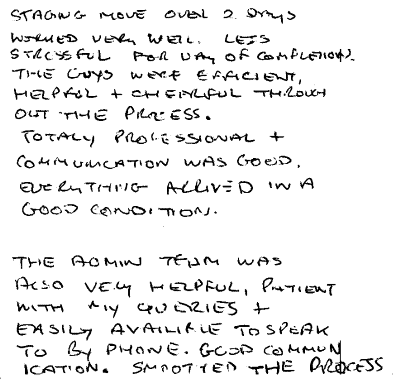 STAGING MOVE OVER 2 DAYS
WORKED VERY WELL. LESS
STRESSFUL FOR DAY OF COMPLETION.
THE GUYS WERE EFFICIENT,
HELPFUL + CHEERFUL THROUGH
OUT THE PROCESS.
TOTALY PROFESSIONAL +
COMMUNICATION WAS GOOD.
EVERYTHING ARRIVED IN A
GOOD CONDITION.
THE ADMIN TEAM WAS
ALSO VERY HELPFUL, PATIENT
WITH MY QUERIES +
EASILY AVAILABLE TO SPEAK
TO BY PHONE. GOOD COMMUN
ICATION. SMOOTHED THE PROCESS